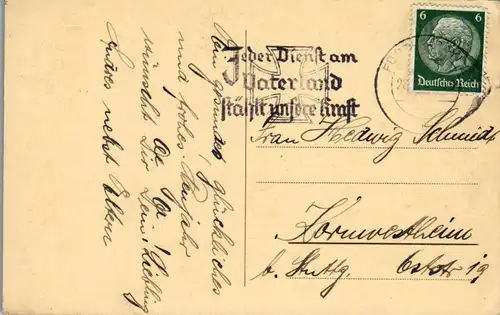 Ein gesundes, glückliches
und frohes Neujahr
wünscht Dir Dein Liebling
nebst Eltern
Jeder Dienst am
Vaterland
stählt unsere Kraft
6 6
Deutsches Reich
Frau Hedwig Schmidt
Kornwestheim
b. Stuttg. Oststr. 19